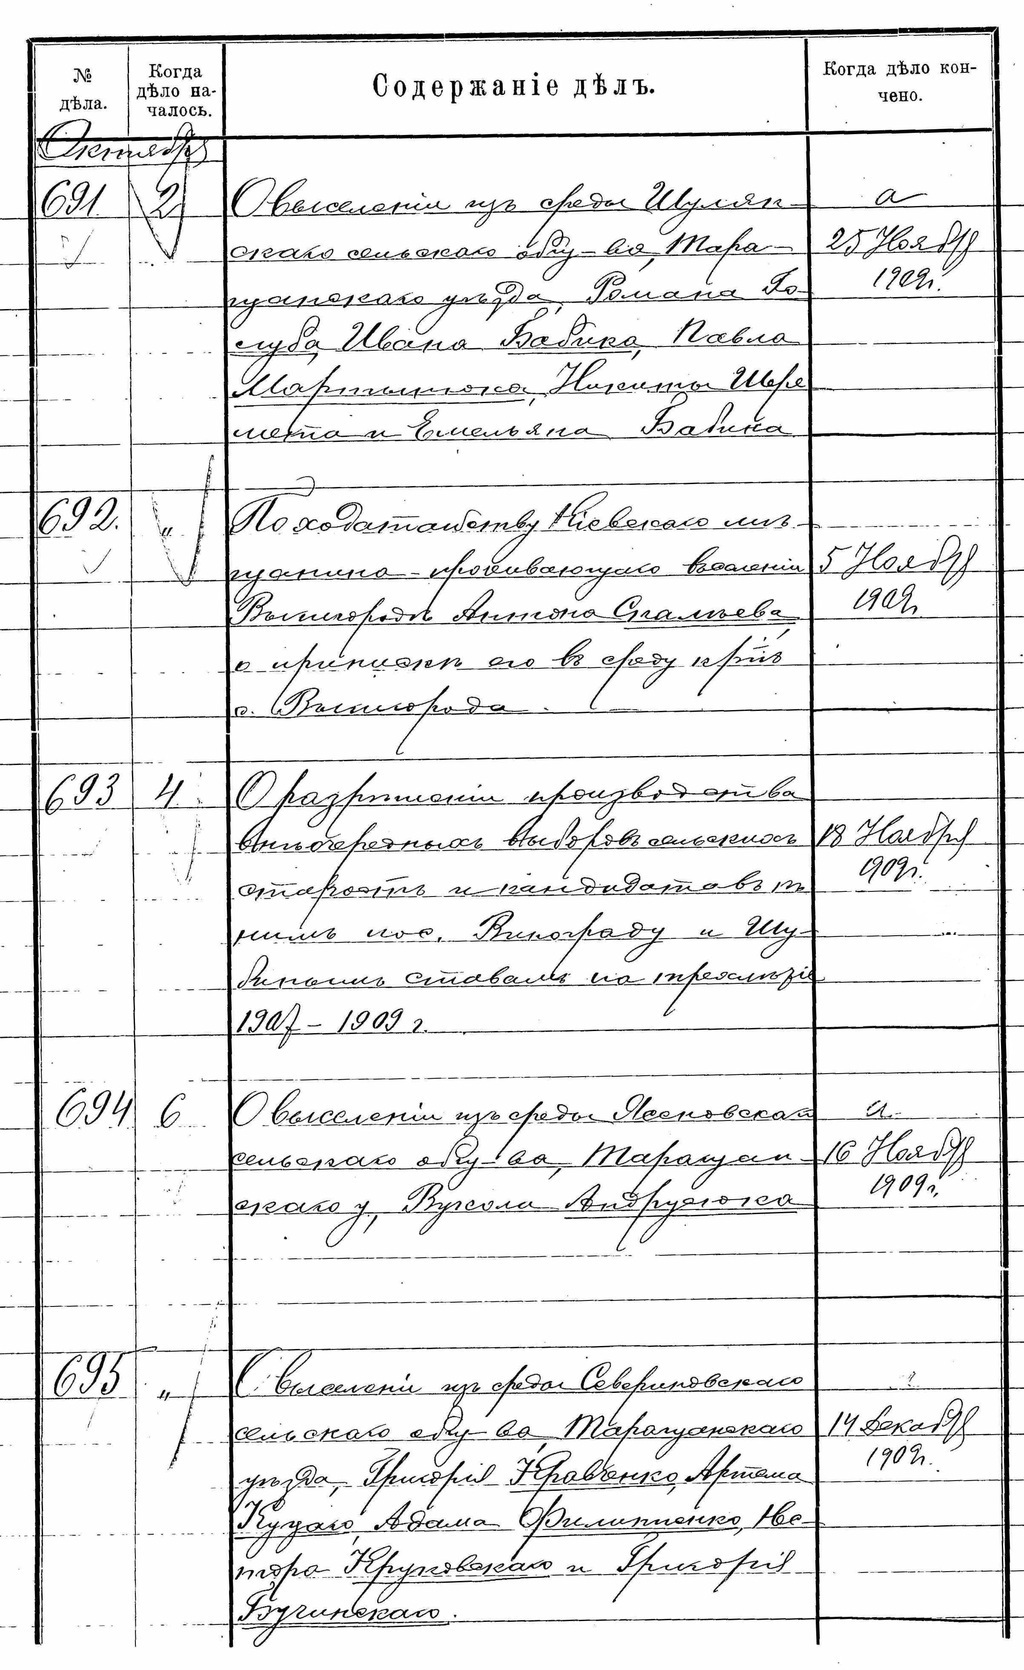 № дѣла.
Когда дѣло началось.
Содержаніе дѣлъ.
Когда дѣло кончено.
Октября
691. 2 О выселеніи изъ среды Шулян-
скаго сельскаго общ-ва, Тара-
щанскаго уѣзда, Романа Го-
луба, Ивана Бабика, Павла
Мартынюка, Никиты Шере
мета и Емельяна Бабика
а
25 Ноября
1909г.
692. " По ходатайству Кіевскаго мѣ-
щанина проживающаго в селеніи
Вышгородъ Антона
о припискѣ его въ среду кр-нъ
с. Вышгорода.
5 Ноября
1909г.
693 4 О разрѣшеніи производства
внѣочередныхъ выборовъ сельскихъ
старостъ и кандидатовъ къ
нимъ по с. Винограду и Шу-
бинымъ ставамъ на трехлѣтіе
1907 - 1909 г.
18 Ноября
1909г.
694 6 О выселеніи изъ среды Ясеновскаго
сельскаго общ-ва, Таращан-
скаго у, Вукола Андрусюка
а
16 Ноября
1909г.
695 " О выселеніи изъ среды Севериновскаго
сельскаго общ-ва, Таращанскаго
уѣзда, Григорія Кравченко, Артема
Куцаго, Адама Филипенко, Не-
стора Круковскаго и Григорія
Бучинскаго.
14 Декабря
1909г.